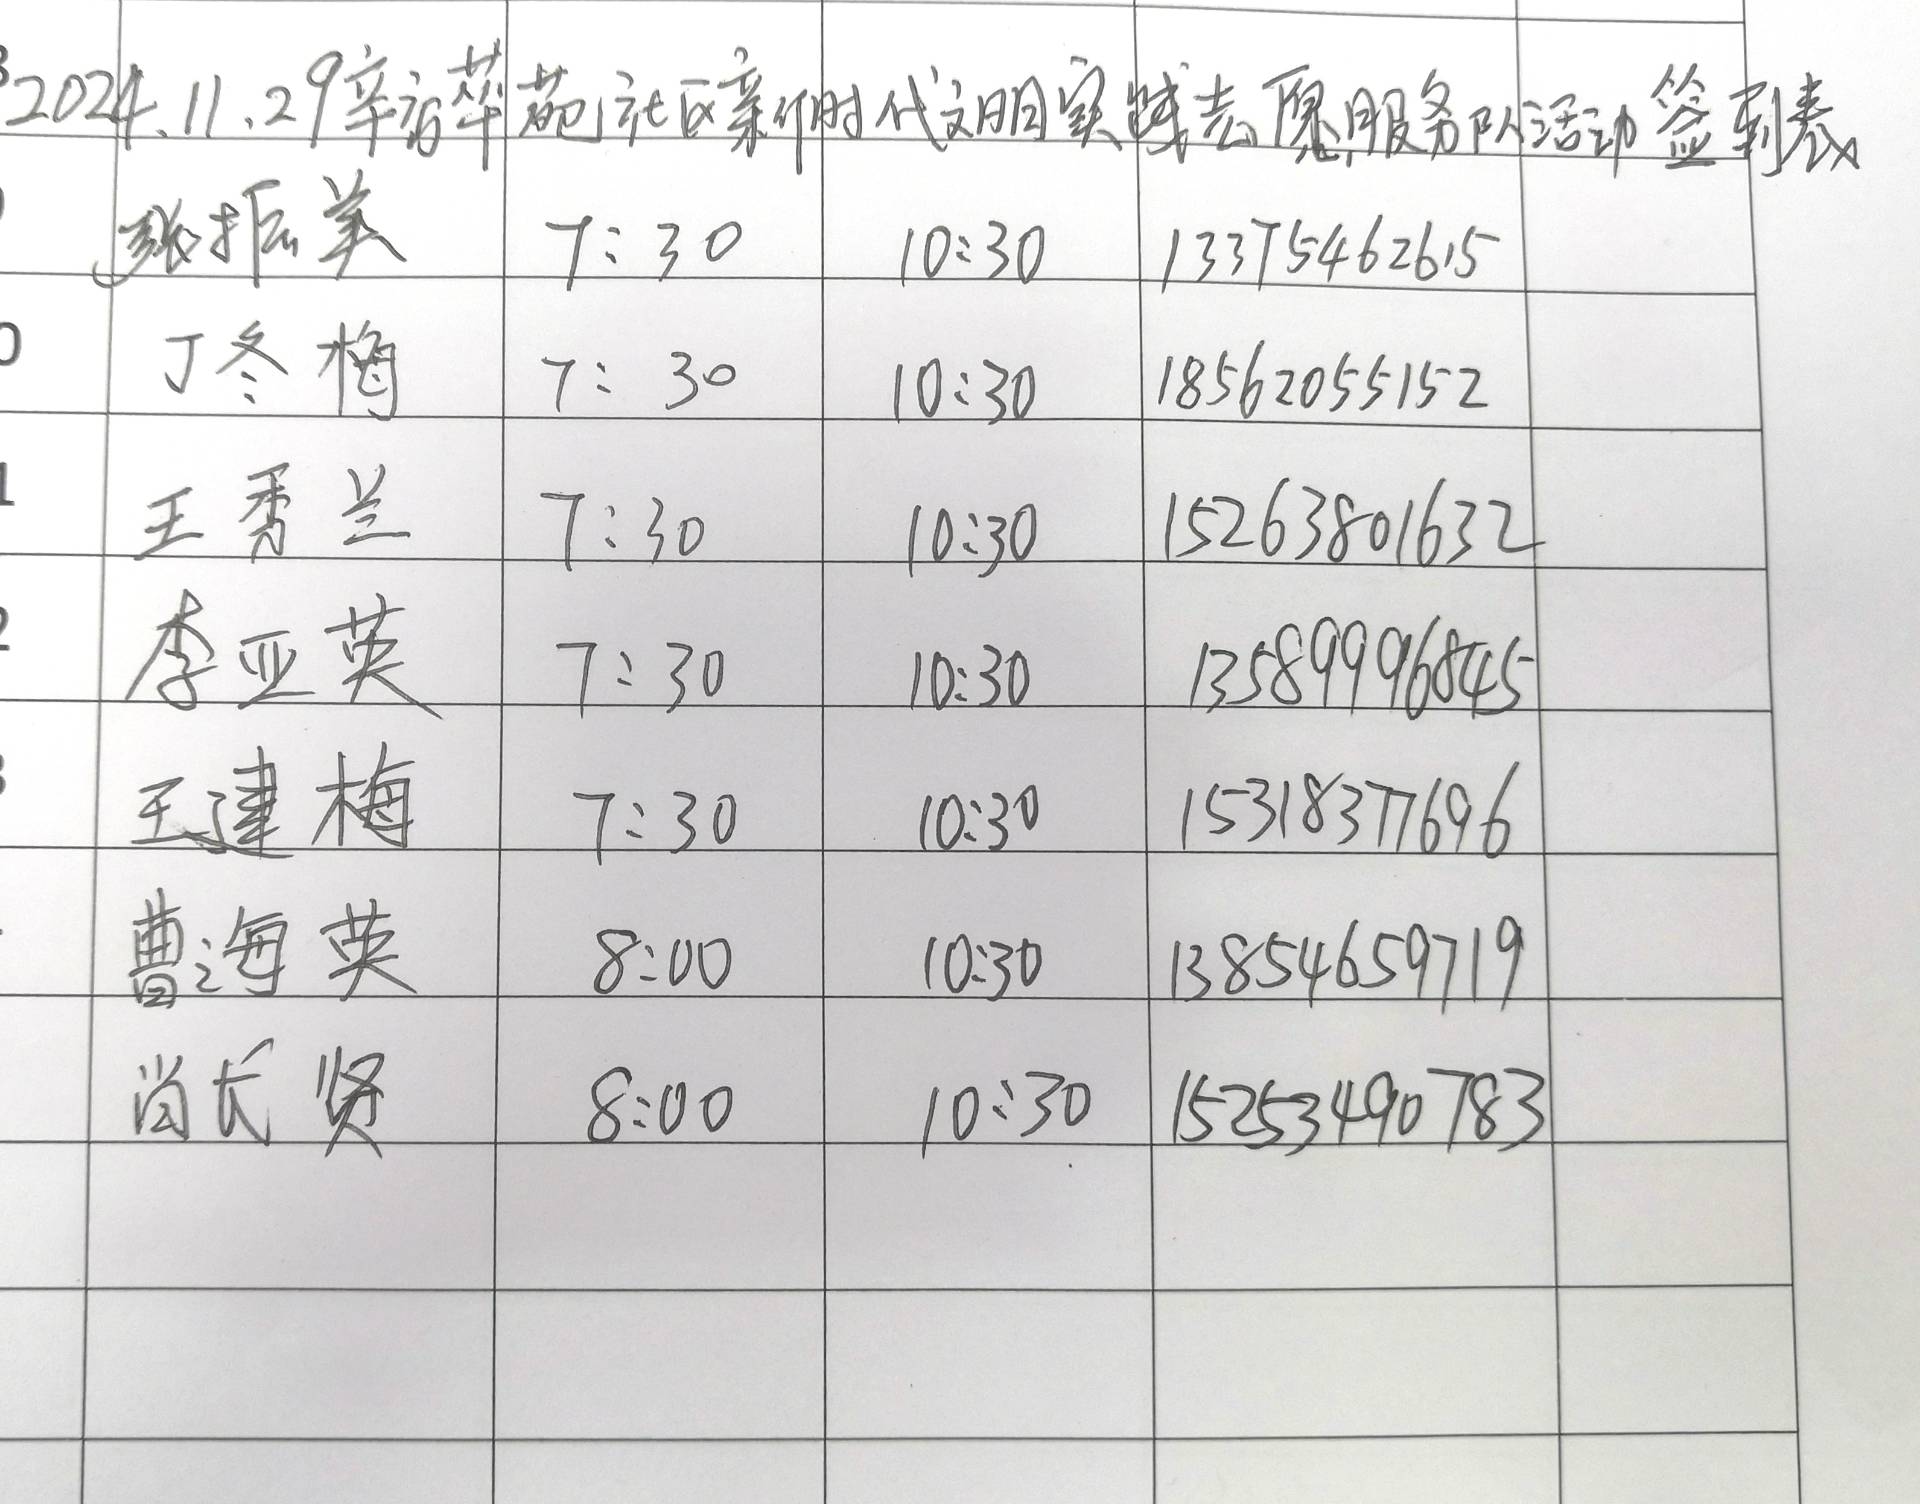 2024.11.29辛店萃苑社区新时代文明实践志愿服务队活动签到表
张振美 7:30 10:30 13375462615
0 丁冬梅 7:30 10:30 18562055152
1 王秀兰 7:30 10:30 15263801632
2 李亚英 7:30 10:30 13589996845
3 王建梅 7:30 10:30 15318377696
曹海英 8:00 10:30 13854659719
尚长贤 8:00 10:30 15253490783